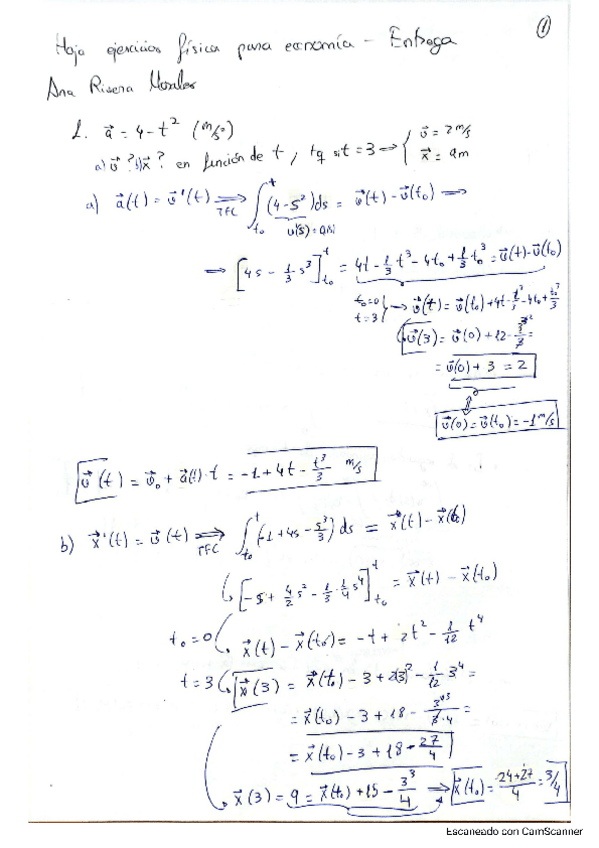 ①
Hoja ejercicios física para economía - Entrega
Ana Rivera Morales
1. a⃗ = 4 - t² (m/s²)
a) v⃗? b) x⃗? en función de t, tq si t = 3 ⇒ { v⃗ = 2 m/s
x⃗ = 9m
a) a⃗(t) = v⃗'(t) ⇒ ∫ₜ₀ᵗ (4 - s²) ds = v⃗(t) - v⃗(t₀) ⇒
TFC
⇒ [4s - 1/3 s³]ₜ₀ᵗ = 4t - 1/3 t³ - 4t₀ + 1/3 t₀³ = v⃗(t) - v⃗(t₀)
t₀=0
t=3 } → v⃗(t) = v⃗(t₀) + 4t - t³/3 - 4t₀ + t₀³/3
v⃗(3) = v⃗(0) + 12 - 3³/3 =
= v⃗(0) + 3 = 2
v⃗(0) = v⃗(t₀) = -1 m/s
v⃗(t) = v⃗₀ + a⃗(t)·t = -1 + 4t - t³/3 m/s
b) x⃗'(t) = v⃗(t) ⇒ ∫ₜ₀ᵗ (-1 + 4s - s³/3) ds = x⃗(t) - x⃗(t₀)
TFC
[-s + 4/2 s² - 1/3 · 1/4 s⁴]ₜ₀ᵗ = x⃗(t) - x⃗(t₀)
t₀ = 0 ( x⃗(t) - x⃗(t₀) = -t + 2t² - 1/12 t⁴
t = 3 ( x⃗(3) = x⃗(t₀) - 3 + 2(3)² - 1/12 3⁴ =
= x⃗(t₀) - 3 + 18 - 3⁴/3·4 =
= x⃗(t₀) - 3 + 18 - 27/4
x⃗(3) = 9 = x⃗(t₀) + 15 - 3³/4 ⇒ x⃗(t₀) = -24+27/4 = 3/4
Escaneado con CamScanner